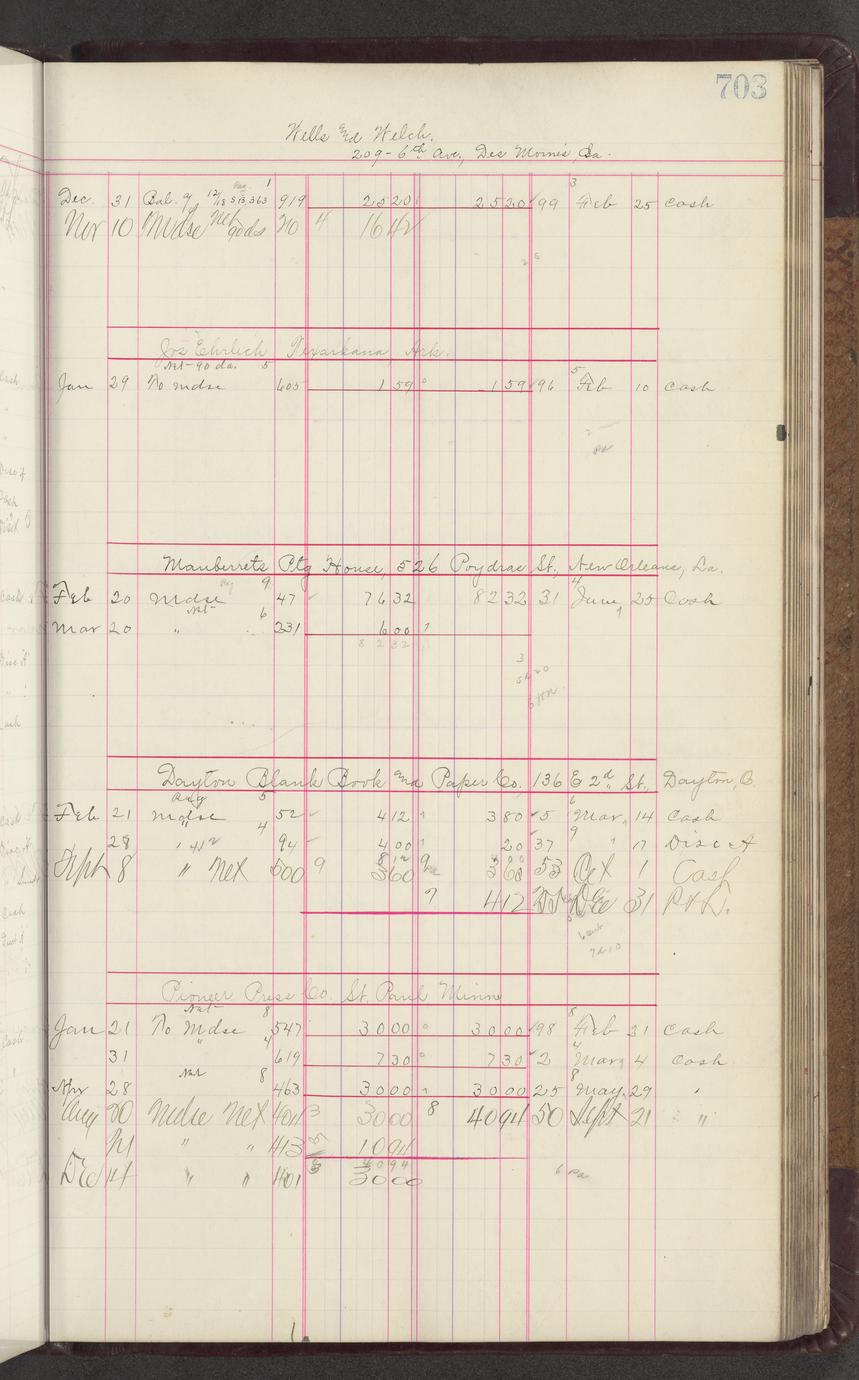 703
Wells and Welch.
209-6th Ave., Des Moines, Ia.
Dec. 31 Bal. of 12/18 513,363 919 25 20 25 20 99 Feb 25 Cash
Nov 10 Mdse Net 90 ds 20 4 16 42
Jos Ehrlich Texarkana Ark.
Net-90 da. 5
Jan 29 To mdse 605 1 59 1 59 96 Feb 10 Cash
Pd
Manberrets Ptg House, 526 Poydras St. New Orleans, La.
Reg 9 4
Feb 20 Mdse 47 76 32 82 32 31 June 25 Cash
Net 6
Mar 20 " 231 6 00
8 2 32
Dayton Blank Book and Paper Co. 136 E 2d St., Dayton, O
Reg 5 6
Feb 21 Mdse 52 4 12 3 80 5 Mar. 14 Cash
" 4 9
28 94 4 00 20 37 " 17 Disc
8 12
Sept 8 " Net 500 9 3 60 3 60 53 Oct 1 Cash
7 4 12 Dec 31 P&L.
Pioneer Press Co. St. Paul Minn
Net 8 8
Jan 21 To Mdse 547 30 00 30 00 98 Feb 21 Cash
" 4 4
31 619 7 30 7 30 2 Mar 4 Cash
Net 8 8
Apr 28 463 30 00 30 00 25 May 29 "
Aug 20 Mdse Net 404 3 30 00 8 40 94 50 Sept 21 "
21 " " 413 10 94
4 0 9 4
Dec 14 " " 401 30 00 6 Pd